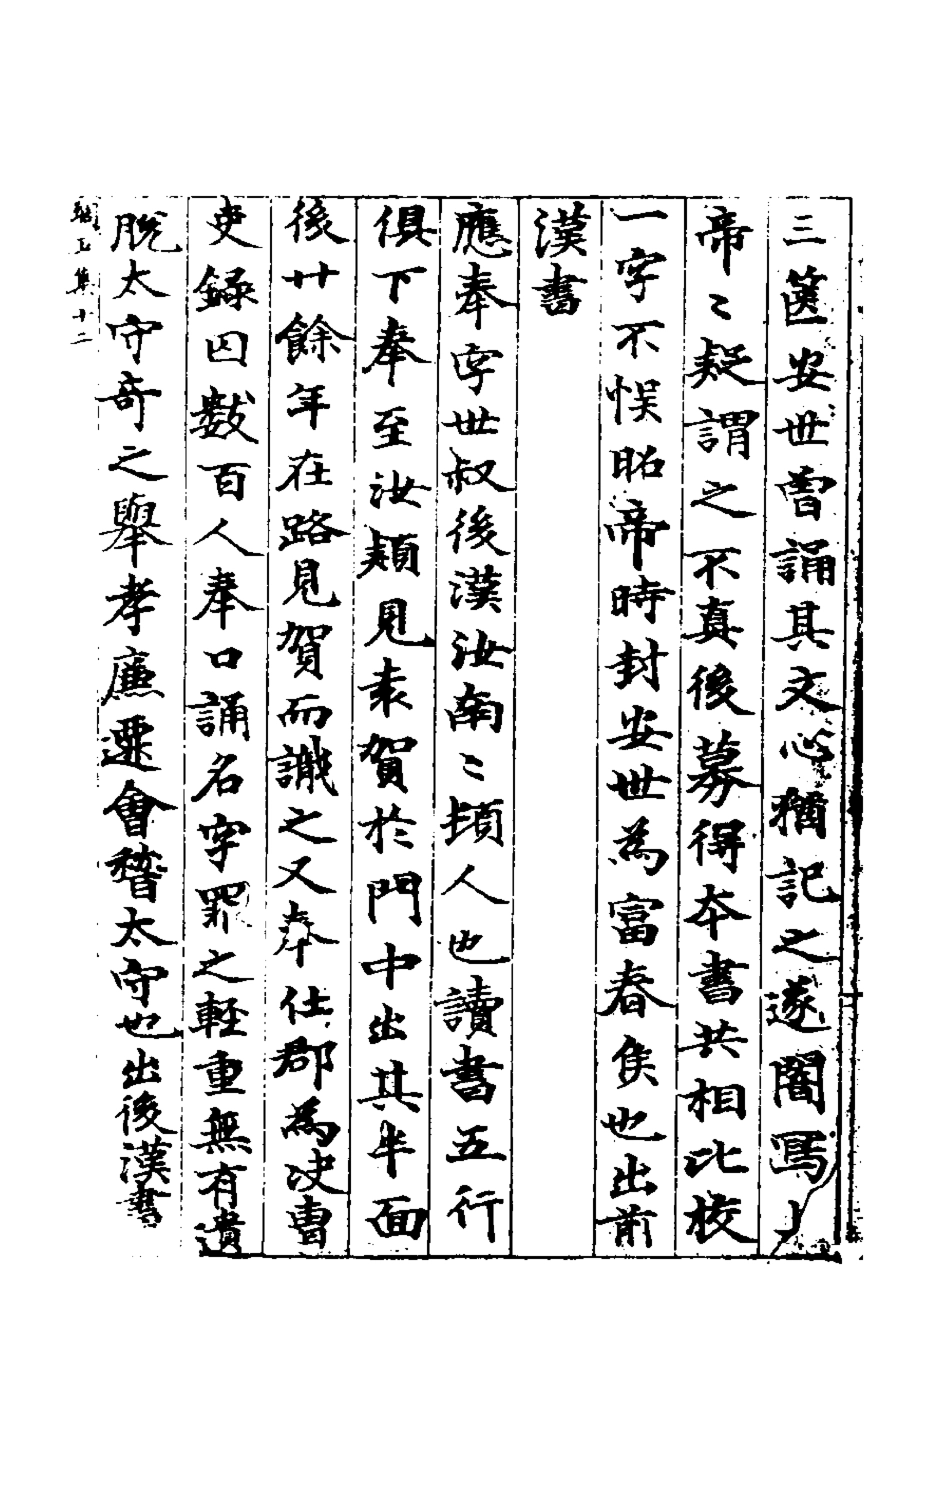 三篋安世曾誦其文心猶記之遂闇寫上
帝〻疑謂之不真後募得本書共相比校
一字不悮昭帝時封安世為富春侯也出前
漢書
應奉字世叔後漢汝南〻頓人也讀書五行
俱下奉至汝潁見袁賀於門中出其半面
後廿餘年在路見賀而識之又奉仕郡為决曹
吏錄囚數百人奉口誦名字罪之輕重無有遺
脫太守奇之舉孝廉遷會稽太守也出後漢書
玉集十二